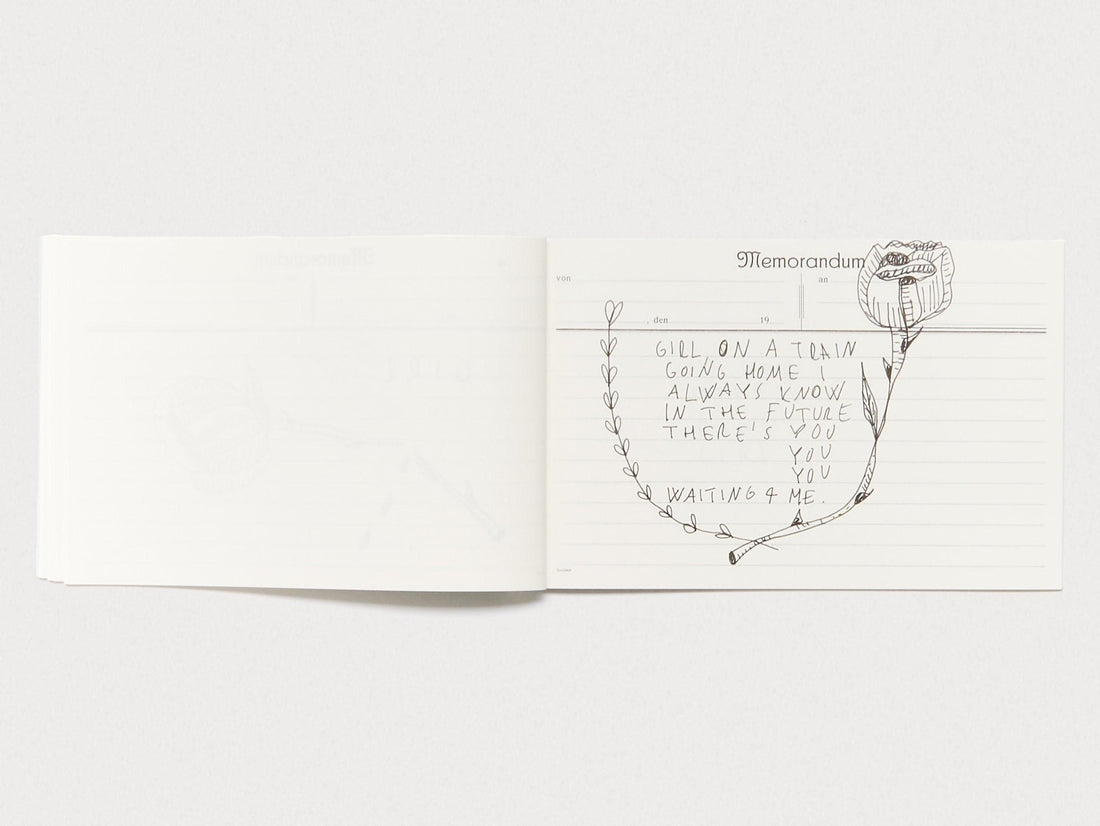 Memorandum
von
an
, den
19
GIRL, ON A TRAIN
GOING HOME I
ALWAYS KNOW
IN THE FUTURE
THERE'S YOU
YOU
YOU
WAITING 4 ME.